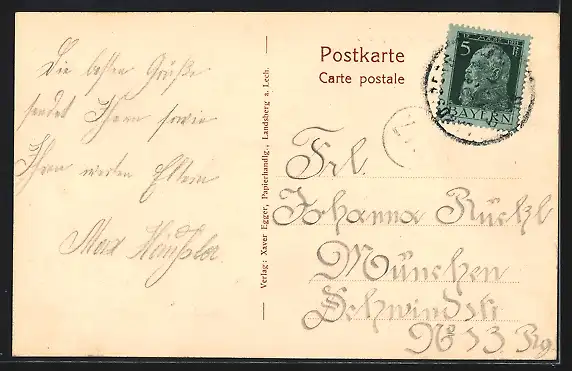 Die besten Grüße
sendet Ihnen sowie
Ihren werten Eltern
Max
Verlag: Xaver Egger, Papierhandlg., Landsberg a. Lech.
Postkarte
Carte postale
12. MÄRZ 1911
5 Pf
BAYERN
Frl.
Johanna Rückl
München
Schwindstr
No 13. Rg